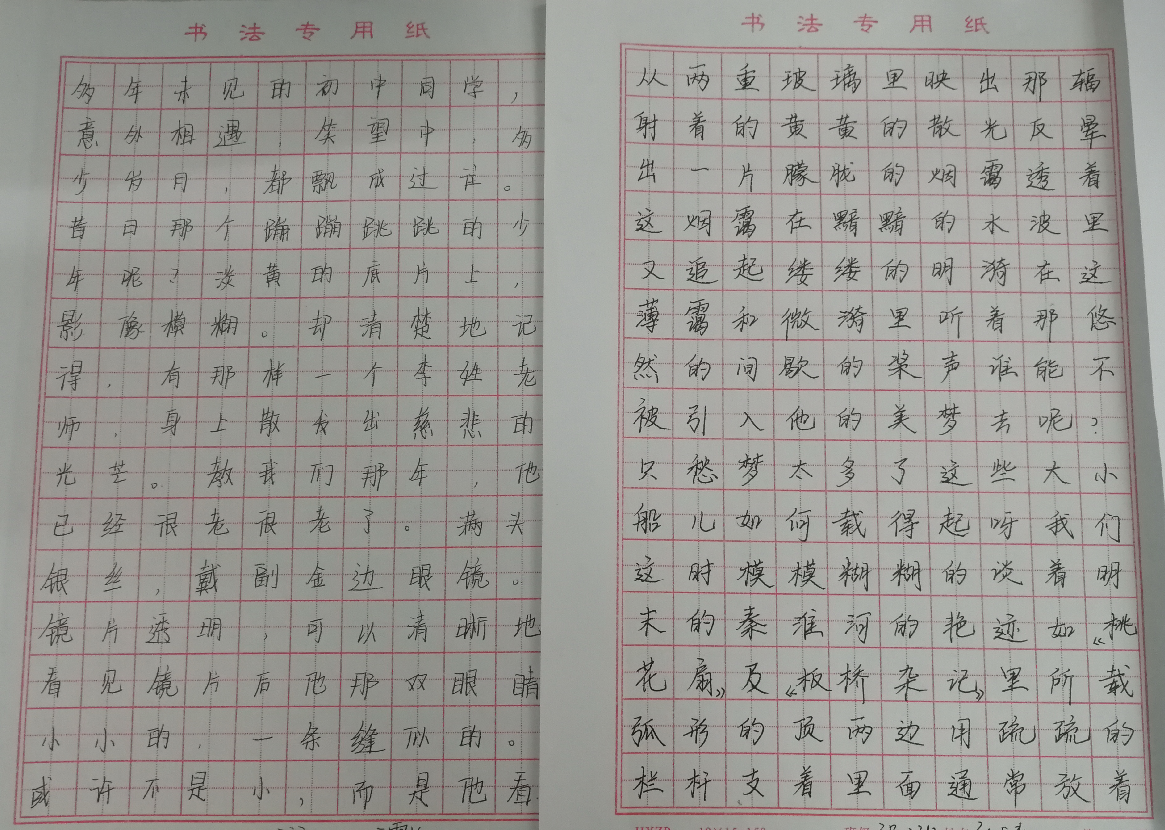 书法专用纸
多年未见的初中同学，
意外相遇，笑望中，多
少岁月，都飘成过往。
昔日那个蹦蹦跳跳的少
年呢？淡黄的底片上，
影像模糊。却清楚地记
得，有那样一个李姓老
师，身上散发出慈悲的
光芒。教我们那年，他
已经很老很老了。满头
银丝，戴副金边眼镜。
镜片透明，可以清晰地
看见镜片后他那双眼睛
小小的，一条缝似的。
或许不是小，而是他看
书法专用纸
从两重玻璃里映出那辐
射着的黄黄的散光反晕
出一片朦胧的烟霭透着
这烟霭在黯黯的水波里
又追起缕缕的明漪在这
薄霭和微漪里听着那悠
然的间歇的桨声谁能不
被引入他的美梦去呢？
只愁梦太多了这些大小
船儿如何载得起呀我们
这时模模糊糊的谈着明
末的秦淮河的艳迹如《桃
花扇》及《板桥杂记》里所载
弧形的顶两边用疏疏的
栏杆支着里面通常放着